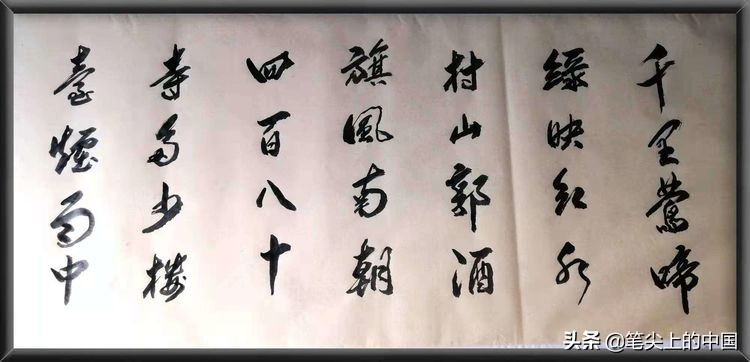 千里鶯啼
緑映红水
村山郭酒
旗風南朝
四百八十
寺多少樓
臺煙雨中
头条 @笔尖上的中国